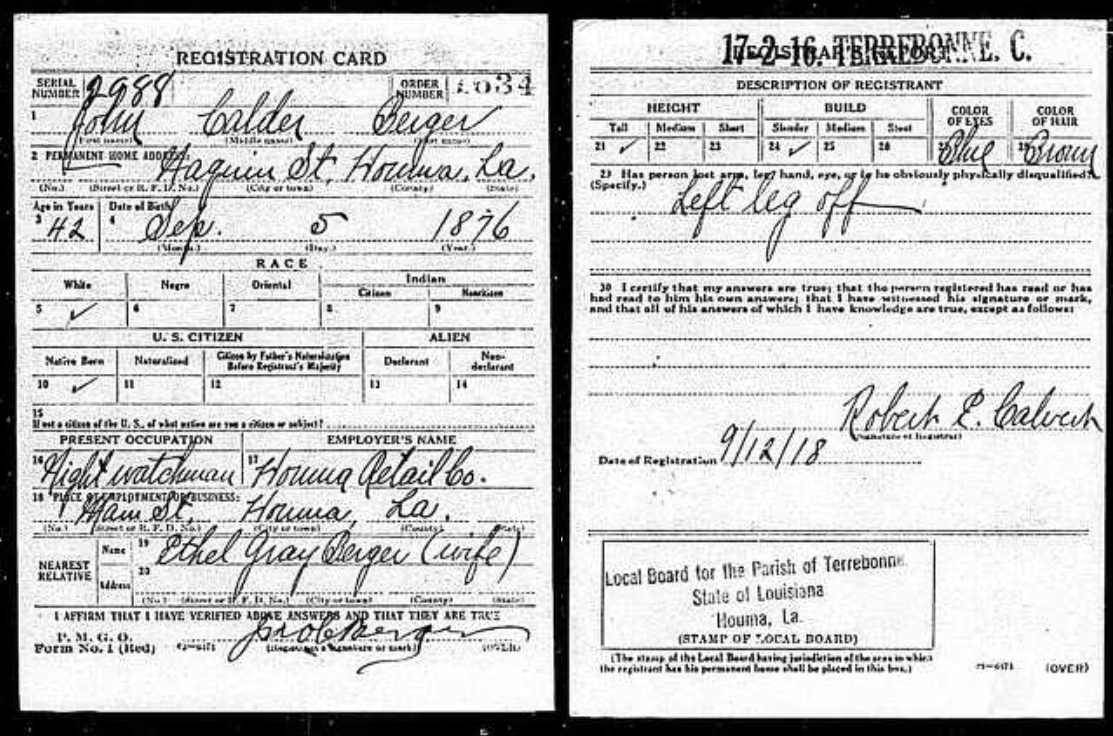 REGISTRATION CARD
SERIAL NUMBER 2988 ORDER NUMBER
1 John Calder Berger
(First name) (Middle name) (Last name)
2 PERMANENT HOME ADDRESS:
St. Houma, La.
(No.) (Street or R. F. D. No.) (City or town) (County) (State)
Age in Years Date of Birth
3 42 4 Sep. 5 1876
(Month.) (Day.) (Year.)
RACE
White Negro Oriental Indian
Citizen Noncitizen
5 ✓ 6 7 8 9
U. S. CITIZEN ALIEN
Native Born Naturalized Citizen by Father's Naturalization Before Registrant's Majority Declarant Non-declarant
10 ✓ 11 12 13 14
15
If not a citizen of the U. S., of what nation are you a citizen or subject?
PRESENT OCCUPATION EMPLOYER'S NAME
16 Night watchman 17 Houma Retail Co.
18 PLACE OF EMPLOYMENT OR BUSINESS:
Main St. Houma, La.
(No.) (Street or R. F. D. No.) (City or town) (County) (State)
NEAREST RELATIVE Name 19 Ethel Gray Berger (wife)
Address 20
(No.) (Street or R. F. D. No.) (City or town) (County) (State)
I AFFIRM THAT I HAVE VERIFIED ABOVE ANSWERS AND THAT THEY ARE TRUE
P. M. G. O.
Form No. 1 (Red) (Registrant's signature or mark) (OVER)
17-2-16. TERREBONNE. C.
REGISTRAR'S REPORT
DESCRIPTION OF REGISTRANT
HEIGHT BUILD COLOR OF EYES COLOR OF HAIR
Tall Medium Short Slender Medium Stout
21 ✓ 22 23 24 ✓ 25 26 Blue Brown
29 Has person lost arm, leg, hand, eye, or is he obviously physically disqualified?
(Specify.)
Left leg off
30 I certify that my answers are true; that the person registered has read or has
had read to him his own answers; that I have witnessed his signature or mark,
and that all of his answers of which I have knowledge are true, except as follows:
Robert E. Calvert
(Signature of Registrar)
Date of Registration 9/12/18
Local Board for the Parish of Terrebonne
State of Louisiana
Houma, La.
(STAMP OF LOCAL BOARD)
(The stamp of the Local Board having jurisdiction of the area in which
the registrant has his permanent home shall be placed in this box.)
(OVER)